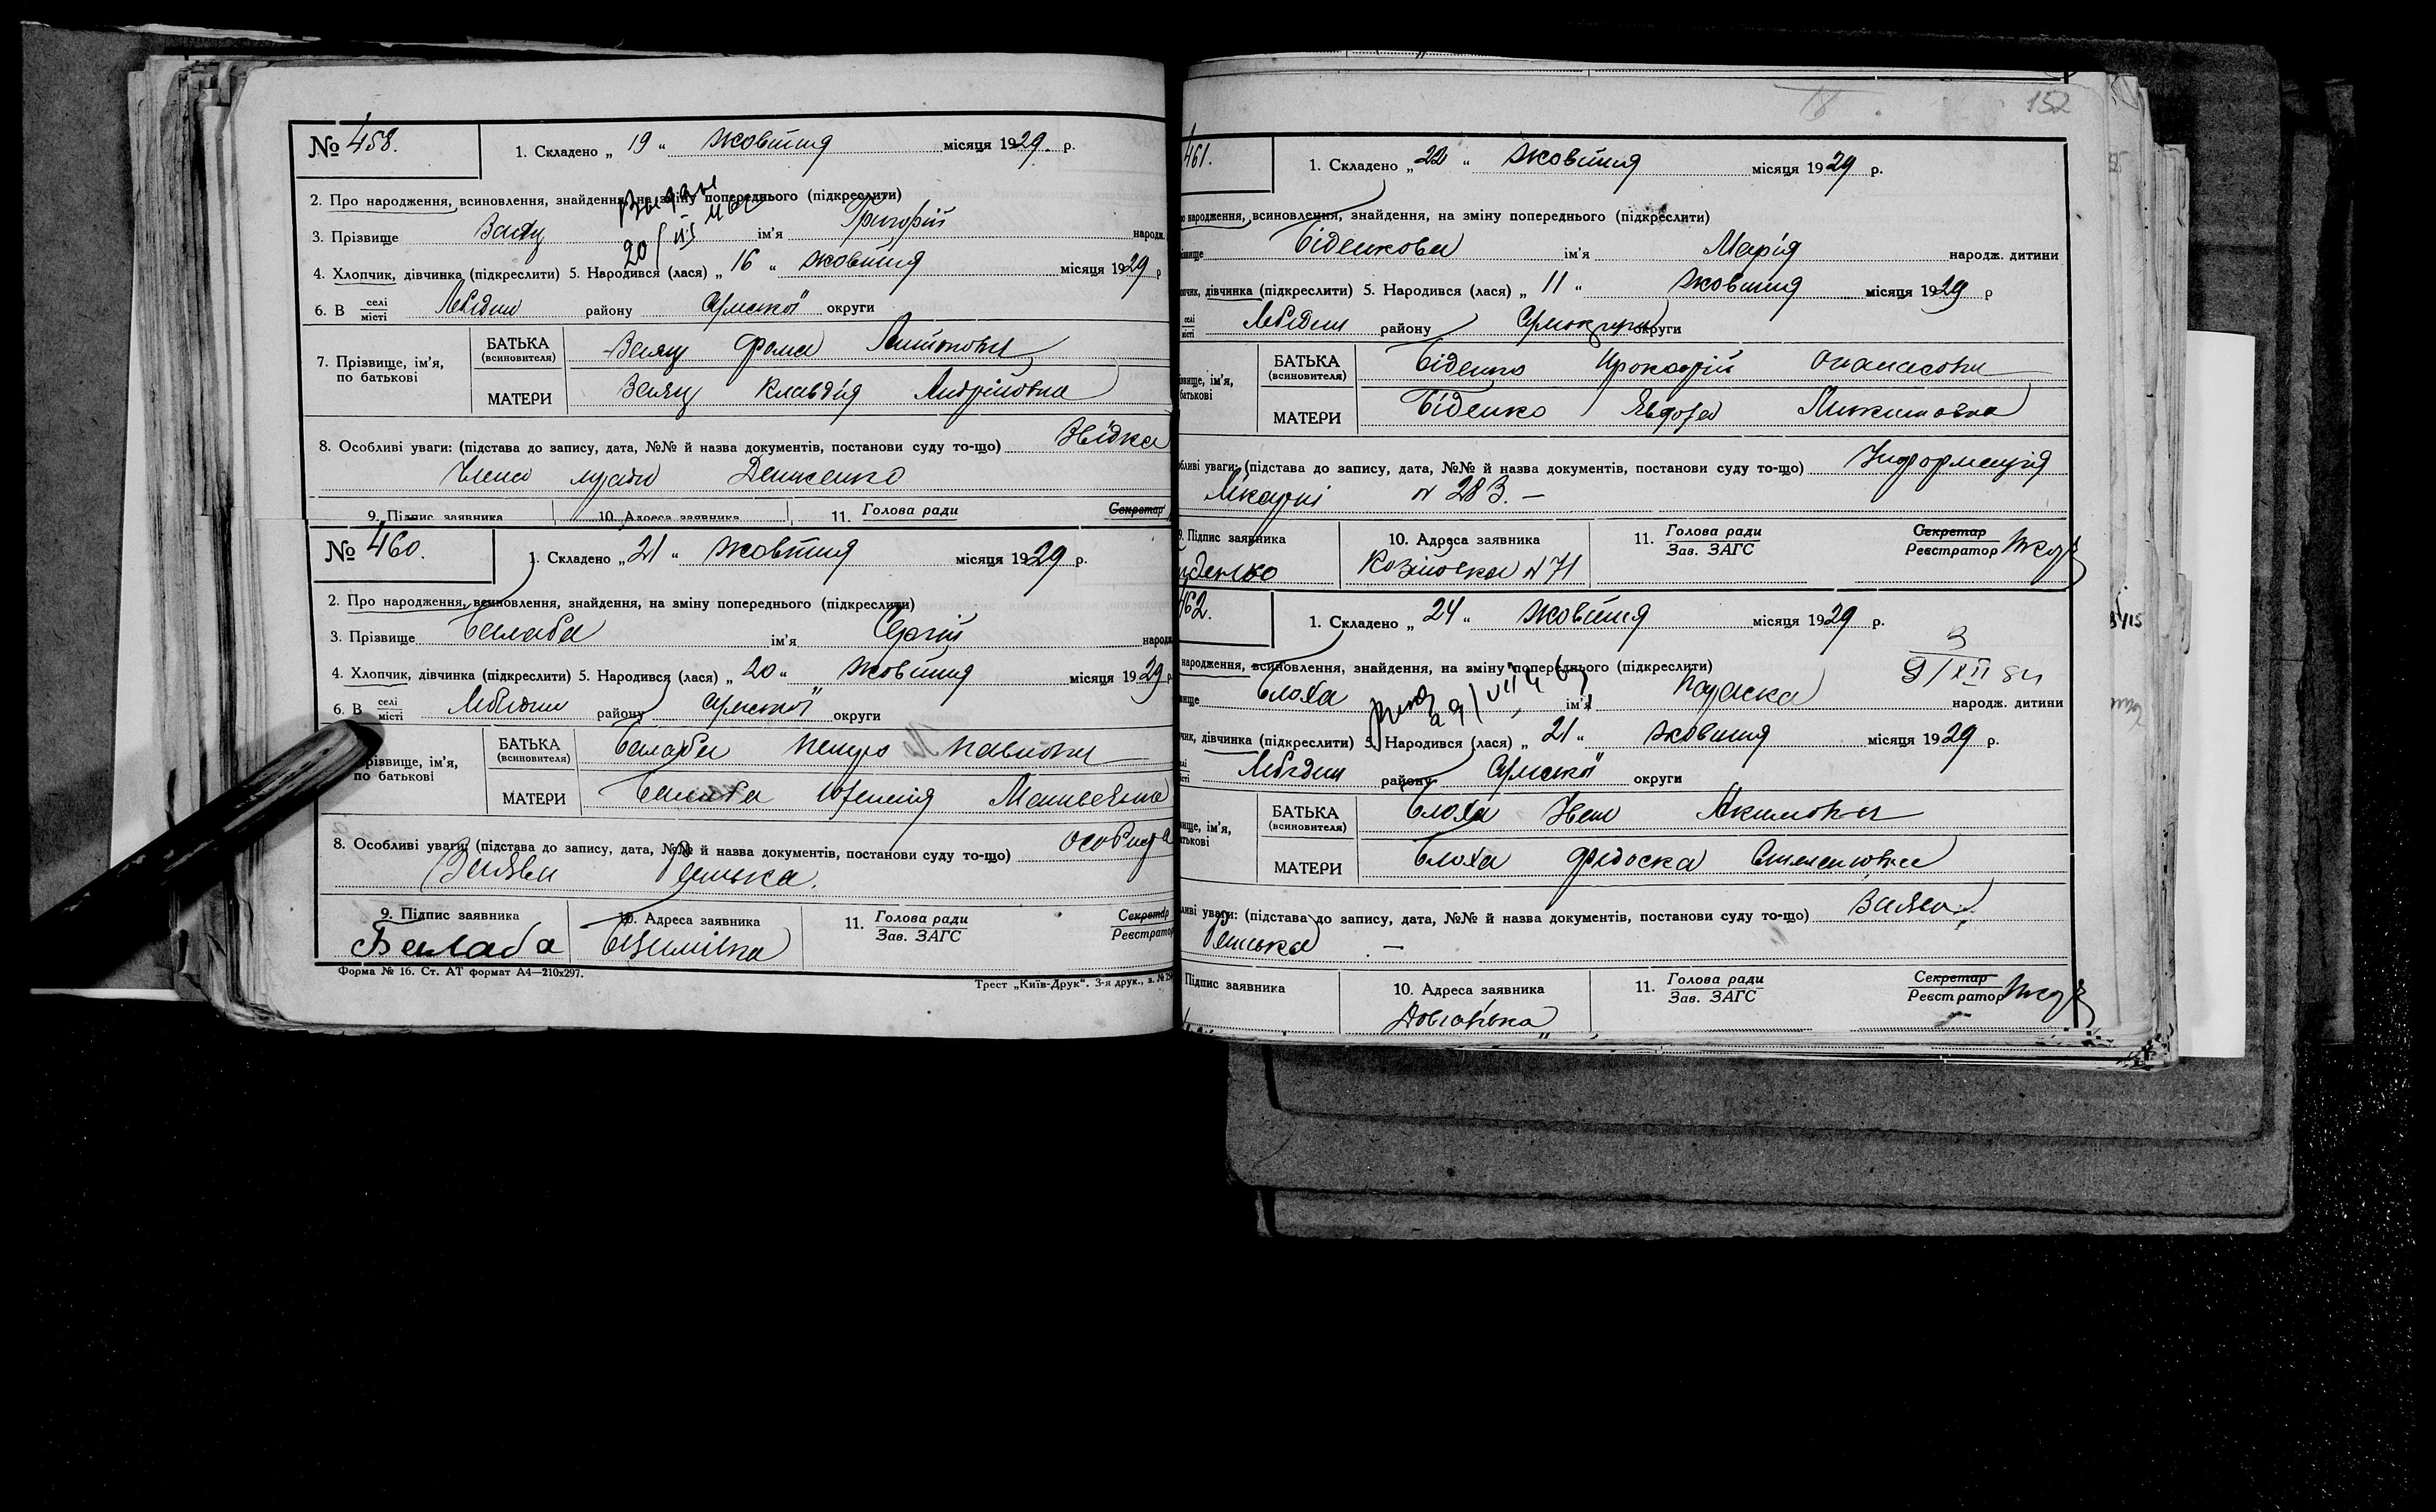 № 458.
1. Складено „ 19 “ жовтня місяця 1929. р.
2. Про народження, всиновлення, знайдення, на зміну попереднього (підкреслити)
3. Прізвище Заяц ім'я Григорій народж.
20/
4. Хлопчик, дівчинка (підкреслити) 5. Народився (лася) „ 16 “ жовтня місяця 1929 р
6. В селі місті Лебедин району Сумської округи
7. Прізвище, ім'я, по батькові
БАТЬКА (всиновителя) Заяц Фома Антонович
МАТЕРИ Заяц Клавдія Андріївна
8. Особливі уваги: (підстава до запису, дата, №№ й назва документів, постанови суду то-що)
Денисенко
9. Підпис заявника 10. Адреса заявника 11. Голова ради Секретар
№ 460.
1. Складено „ 21 “ жовтня місяця 1929 р.
2. Про народження, всиновлення, знайдення, на зміну попереднього (підкреслити)
3. Прізвище Балаба ім'я Сергій народж
4. Хлопчик, дівчинка (підкреслити) 5. Народився (лася) „ 20 “ жовтня місяця 1929 р
6. В селі місті Лебедин району Сумської округи
Прізвище, ім'я, по батькові
БАТЬКА (всиновителя) Балаба Петро Павлович
МАТЕРИ Балаба Матвеевна
8. Особливі уваги: (підстава до запису, дата, №№ й назва документів, постанови суду то-що) особиста
Заява батька.
9. Підпис заявника 10. Адреса заявника 11. Голова ради Зав. ЗАГС Секретар Реєстратор
Балаба
Форма № 16. Ст. АТ формат А4—210х297.
Трест „Київ-Друк“. 3-я друк., з. №
152
461.
1. Складено „ 22 “ жовтня місяця 1929 р.
народження, всиновлення, знайдення, на зміну попереднього (підкреслити)
Біденкова ім'я Марія народж. дитини
дівчинка (підкреслити) 5. Народився (лася) „ 11 “ жовтня місяця 1929 р
селі місті Лебедин району округи
ім'я, батькові
БАТЬКА (всиновителя) Біденко Прокофій Опанасович
МАТЕРИ Біденко Микитовна
уваги: (підстава до запису, дата, №№ й назва документів, постанови суду то-що) Інформація
Лікарні № 283. —
Підпис заявника 10. Адреса заявника 11. Голова ради Зав. ЗАГС Секретар Реєстратор
№ 71
462.
1. Складено „ 24 “ жовтня місяця 1929 р.
3
9/XII 84
народження, всиновлення, знайдення, на зміну попереднього (підкреслити)
Блоха ім'я Параска народж. дитини
дівчинка (підкреслити) 5. Народився (лася) „ 21 “ жовтня місяця 1929 р.
Лебедин району Сумської округи
ім'я,
БАТЬКА (всиновителя) Блоха Іван Акимович
МАТЕРИ Блоха Федоска Степановна
уваги: (підстава до запису, дата, №№ й назва документів, постанови суду то-що) Заява
батька —
Підпис заявника 10. Адреса заявника 11. Голова ради Зав. ЗАГС Секретар Реєстратор